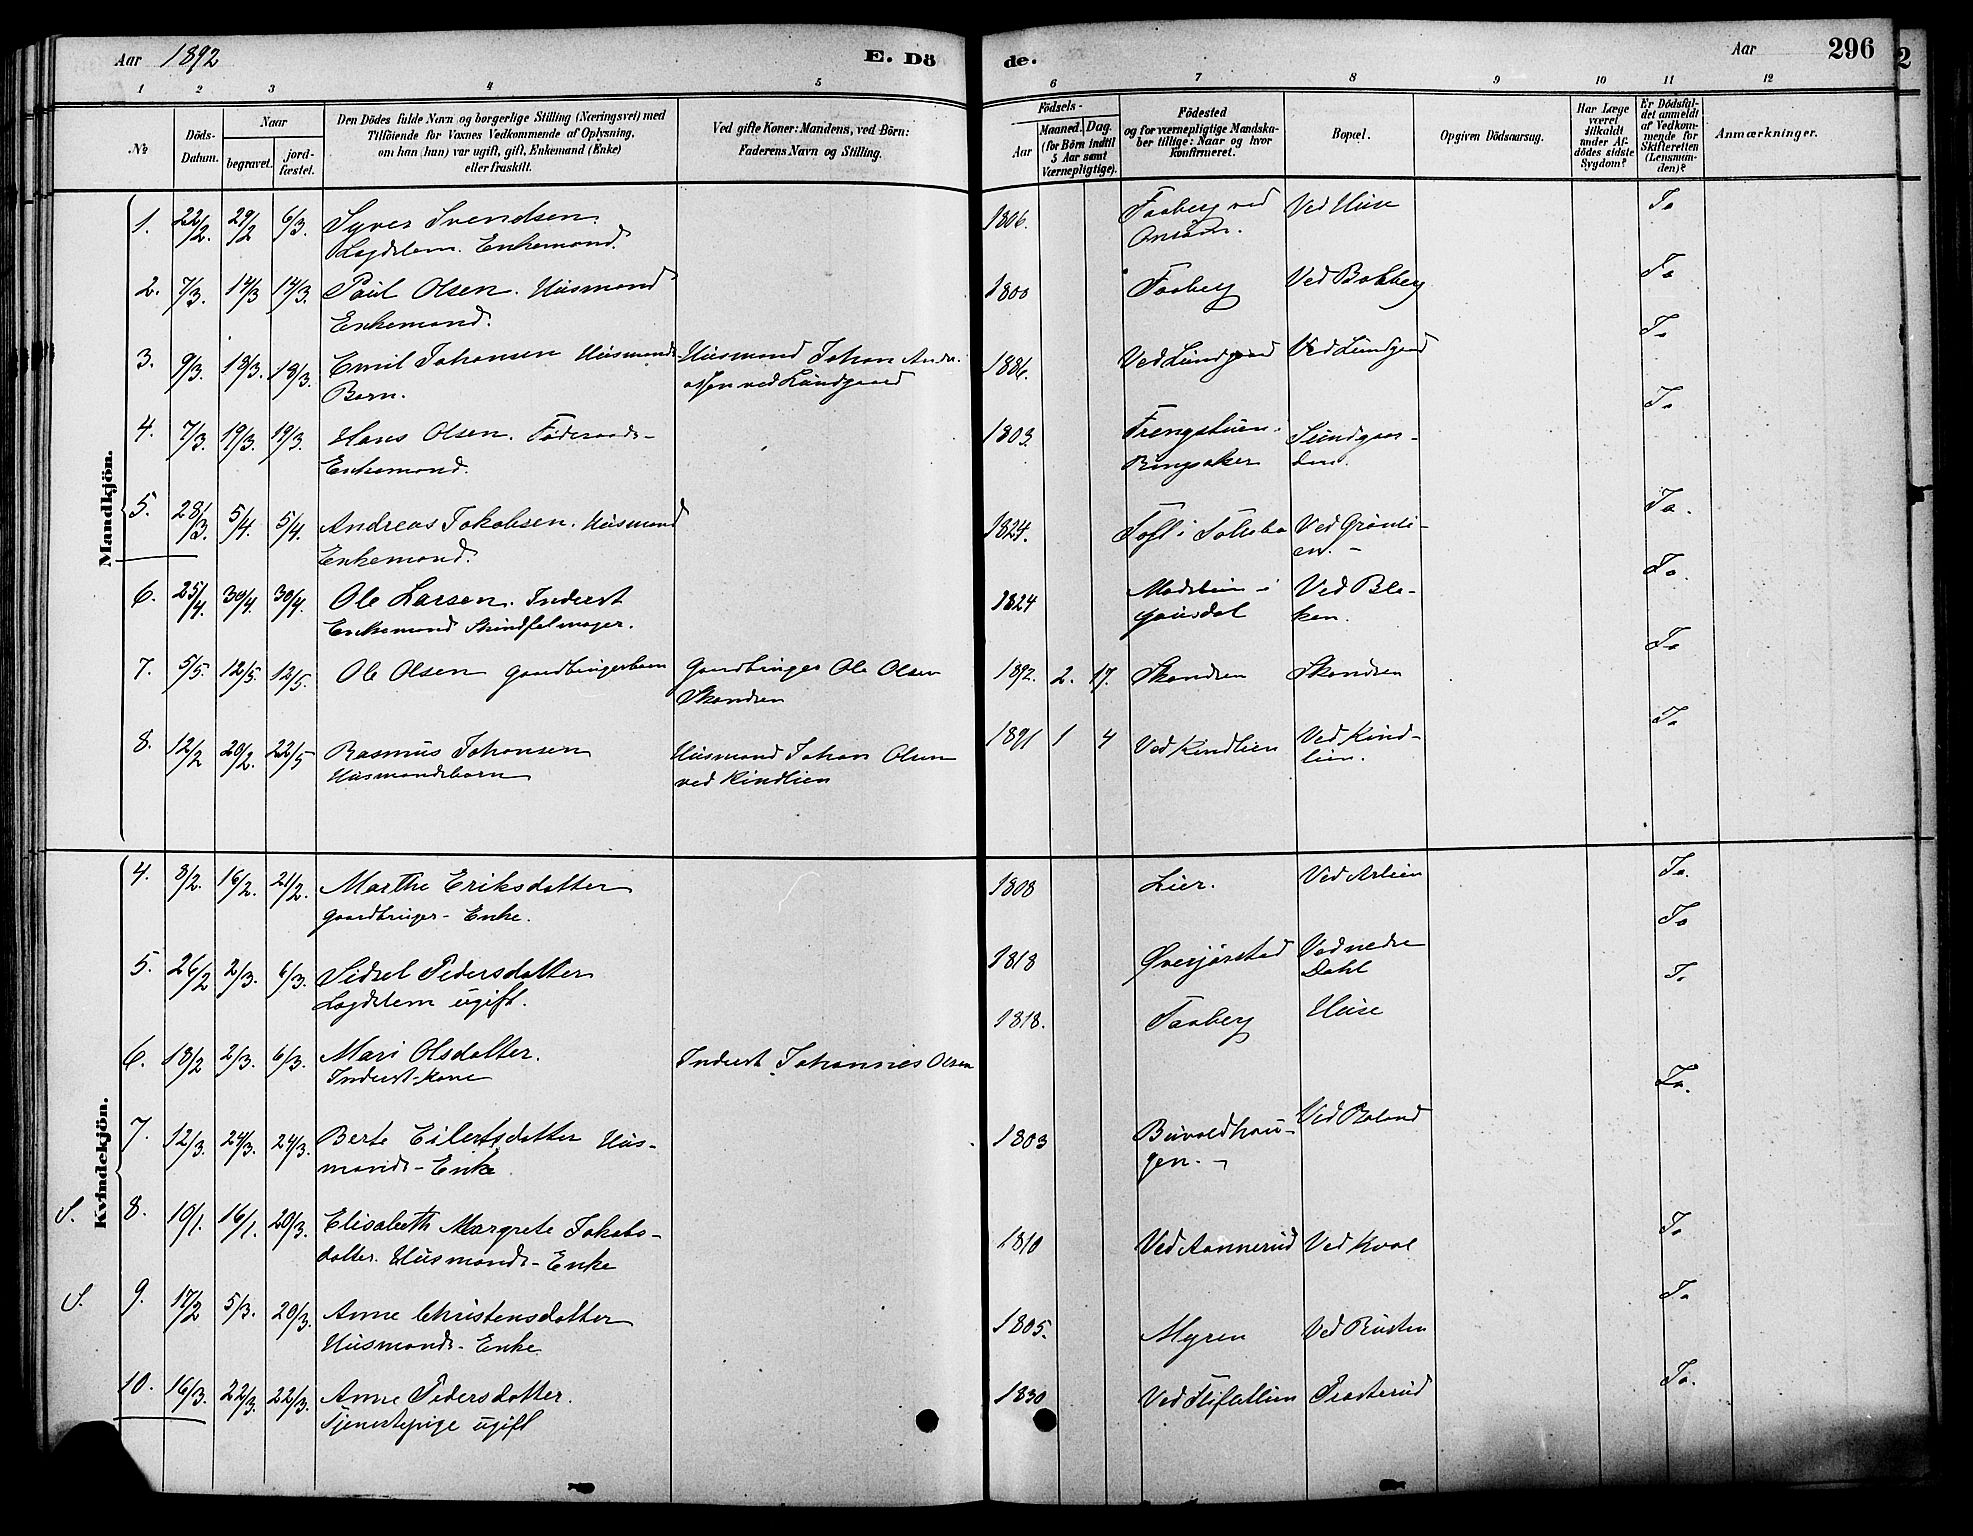 Aar 1892 E. Dö
de. Aar 296
1 2 3 4 5 6 7 8 9 10 11 12
No
Döds-Datum.
Naar
begravet.
jord-fæstet.
Den Dödes fulde Navn og borgerlige Stilling (Næringsvei) med
Tilföiende for Voxnes Vedkommende af Oplysning,
om han (hun) var ugift, gift, Enkemand (Enke)
eller fraskilt.
Ved gifte Koner: Mandens, ved Börn:
Faderens Navn og Stilling.
Födsels-
Aar
Maaned. Dag.
(for Börn indtil
5 Aar samt
Værnepligtige).
Födested
og for værnepligtige Mandska-
ber tillige: Naar og hvor
Konfirmeret.
Bopæl.
Opgiven Dödsaarsag.
Har Læge
været
tilkaldt
under Af-
dödes sidste
Sygdom?
Er Dödsfal-
det anmeldt
af Vedkom-
mende for
Skifteretten
(Lensman-
den)?
Anmærkninger.
Mandkjön.
1. 22/2. 29/2 6/3. Syver Svendsen. 1806. Faaberg ved Ved Huse Ja
Lægdslem. Enkemand.
2. 7/3. 14/3 14/3. Paul Olsen. Husmand 1800 Faaberg Ved Bakberg Ja
Enkemand.
3. 9/3. 18/3. 18/3. Emil Johansen Husmands Husmand Johan Andr. 1886. Ved Lundgaard Ved Lundgaard Ja
Barn. assen ved Lundgaard
4. 7/3. 19/3. 19/3. Hans Olsen. Föderaads- 1803. Frengstuen i Lundgaar- Ja
Enkemand. Ringsaker den.
5. 28/3. 5/4. 5/4. Andreas Jakobsen. Husmand 1824. Ved Grönli- Ja.
Enkemand. en.
6. 25/4. 30/4. 30/4. Ole Larsen. Inderst 1824 i Ved Bla- Ja.
Enkemand Skindfelmager. Gausdal ken.
7. 5/5. 12/5. 12/5. Ole Olsen Gaardbrugerbarn Gaardbruger Ole Olsen 1892. 2. 17. Skandsen Skandsen Ja
Skandsen
8. 12/2 20/2. 22/5 Rasmus Johansen Husmand Johan Olsen 1891 1 4 Ved Kindlien Ved Kind- Ja
Husmandsbarn ved Kindlien lien.
Kvindekjön.
4. 8/2. 16/2. 21/2. Marthe Eriksdatter 1808 Lier. Ved Aslien Ja.
Gaardbruger-Enke.
5. 26/2 2/3. 6/3. Sidsel Pedersdatter 1818 Øverjörstad Ved nedre Ja
Lægdslem ugift. Dahl
6. 18/2 2/3. 6/3. Mari Olsdatter. Inderst Johannes Olsen 1818. Faaberg Huse Ja
Inderst-kone
7. 12/3. 24/3. 24/3. Berte Eilertsdatter Hus- 1803 Buvoldhau- Ved Roland Ja.
mands-Enke gen.
S. 8. 10/1. 16/1. 20/3. Elisabeth Margrete Jakobs- 1810 Ved Aannerud Ved Kval Ja
datter. Husmands-Enke
S. 9. 17/2 5/3. 20/3. Anne Christensdatter 1805. Myren Ved Rusten Ja
Husmands-Enke
10. 16/3. 22/3. 22/3. Anne Pedersdatter. 1830 Trosterud Ja.
Tjenestepige ugift